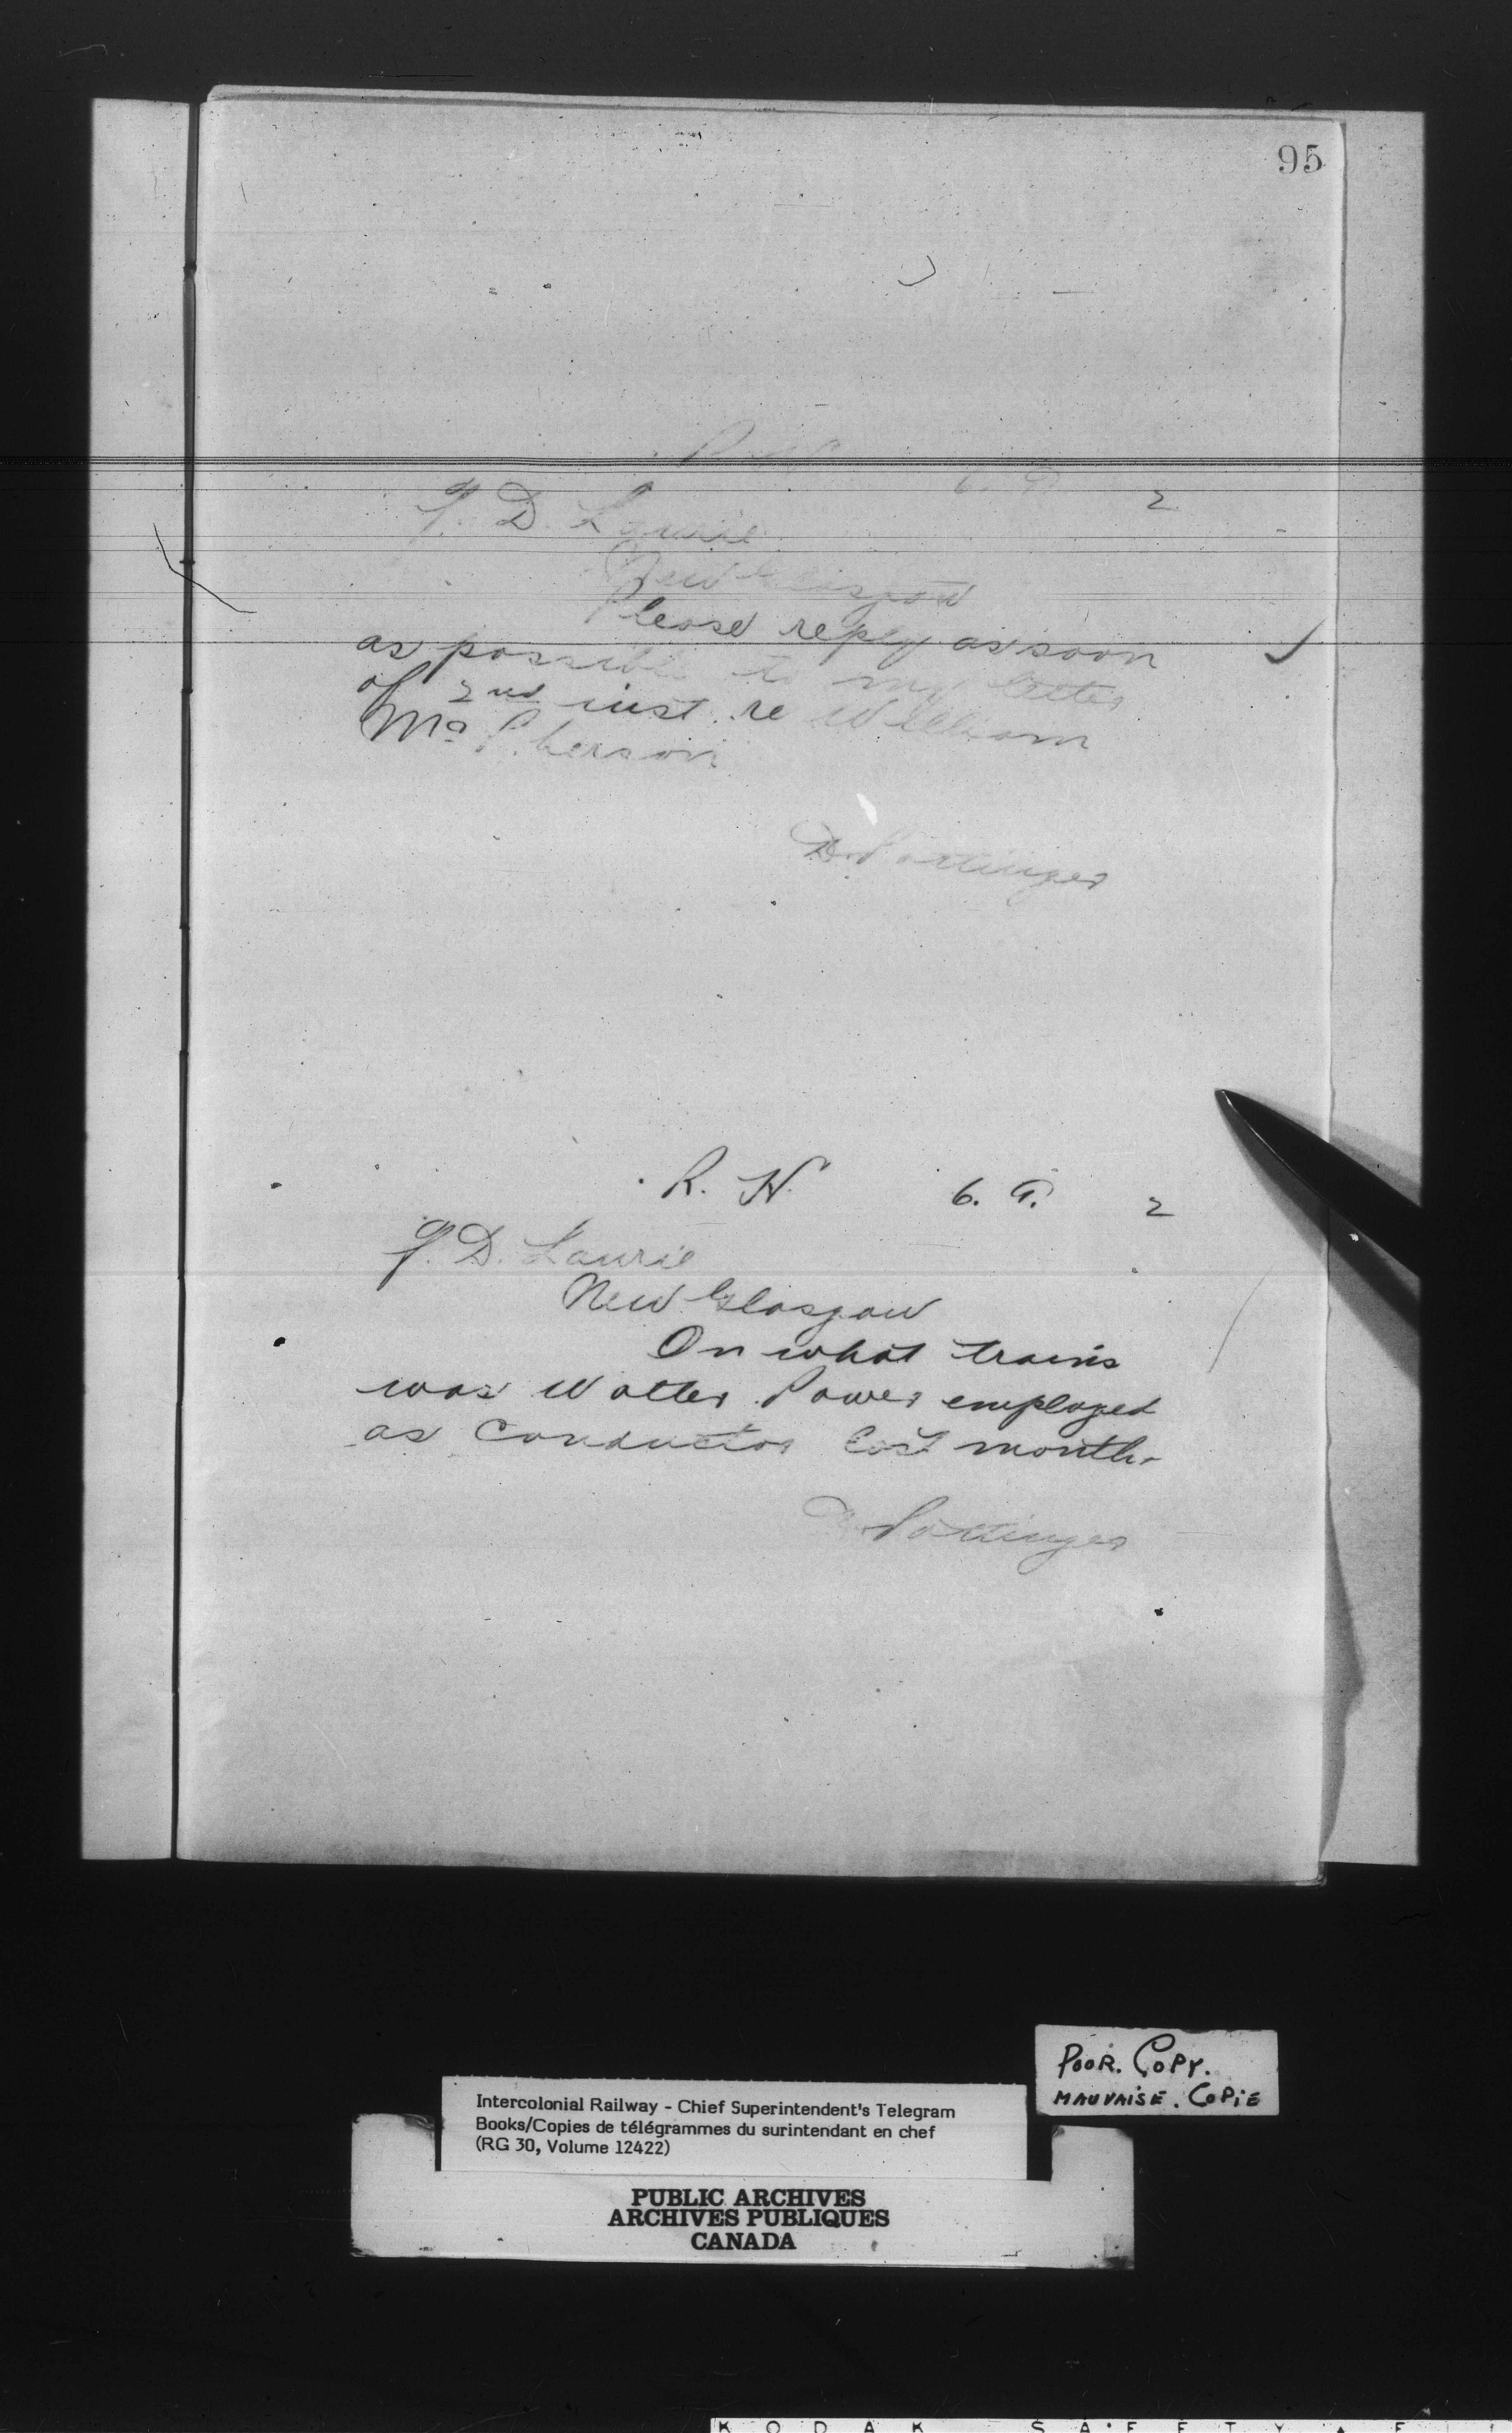 95
2
J. D. Laurie
New Glasgow
Please reply as soon
as possible to my letter
of 2nd inst. re William
McPherson
D. Pottinger
R. H. 6. 2
J. D. Laurie
New Glasgow
On what trains
was Walter Power employed
as Conductor last month.
D. Pottinger
POOR. COPY.
MAUVAISE. COPIE
Intercolonial Railway - Chief Superintendent's Telegram
Books/Copies de télégrammes du surintendant en chef
(RG 30, Volume 12422)
PUBLIC ARCHIVES
ARCHIVES PUBLIQUES
CANADA
KODAK SAFETY